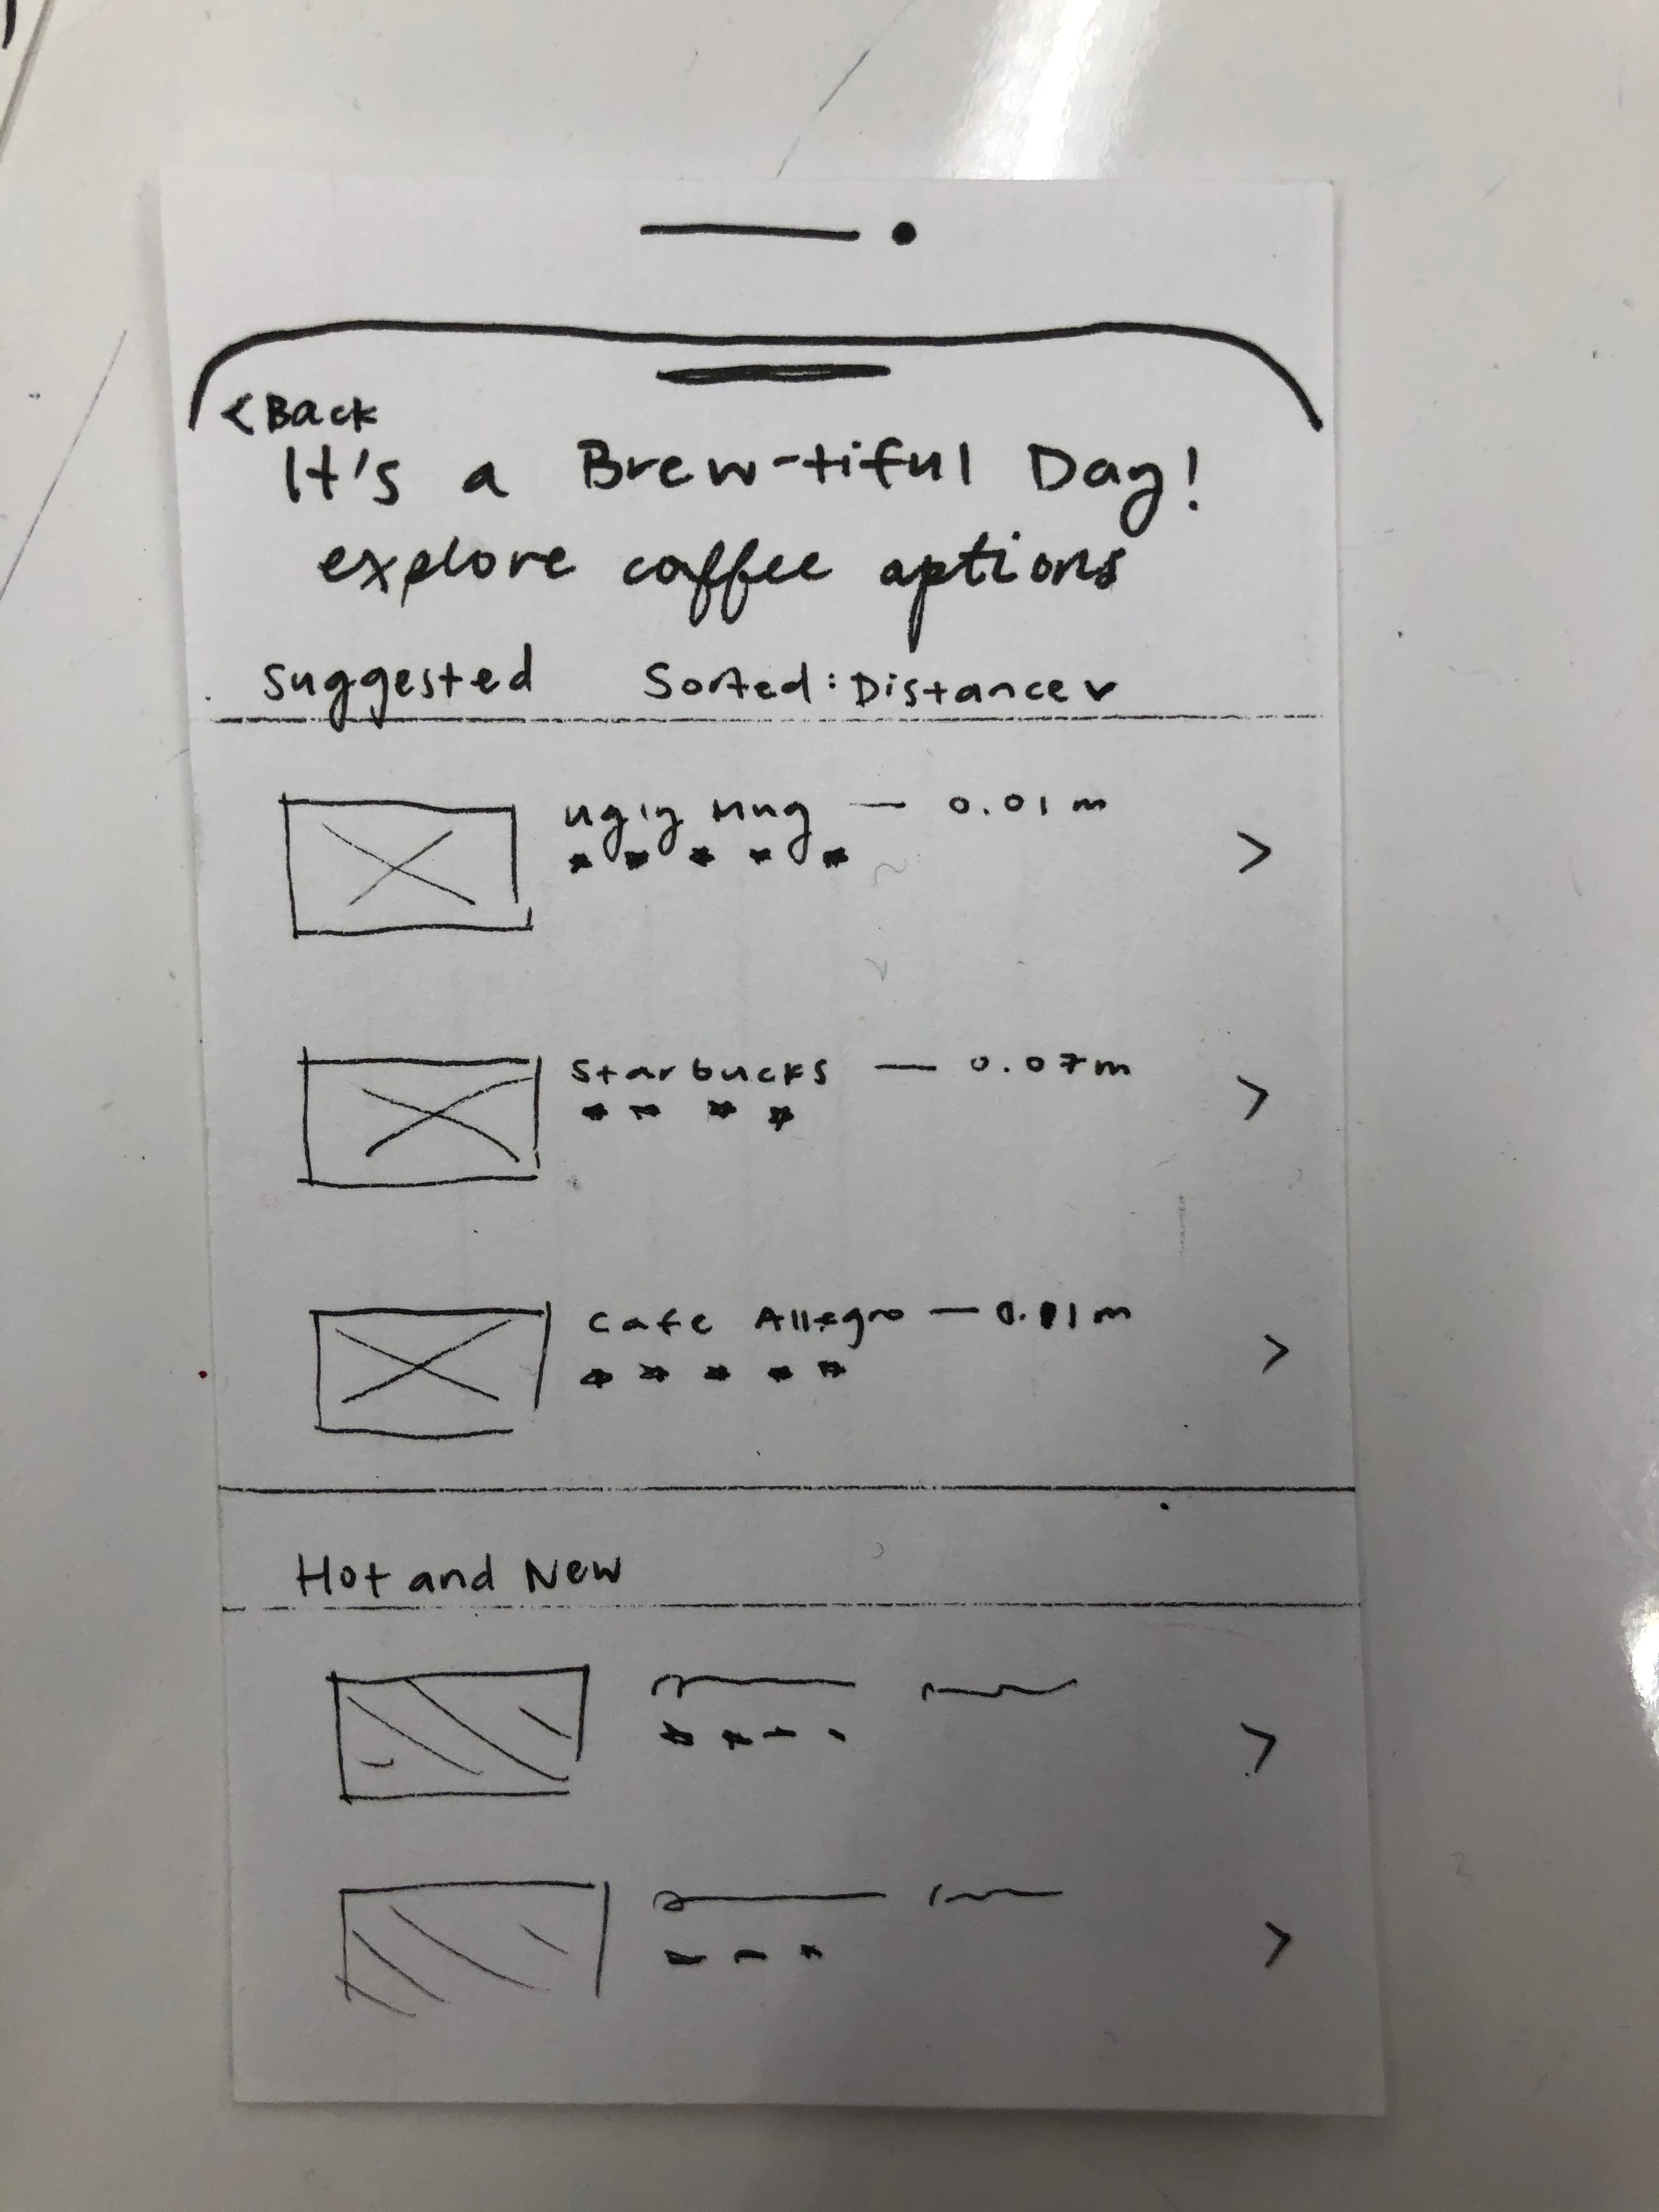 <Back
It's a Brew-tiful Day!
explore coffee options
Suggested Sorted: Distance
Ugly Mug — 0.01 m
Starbucks — 0.07m
Cafe Allegro —
Hot and New